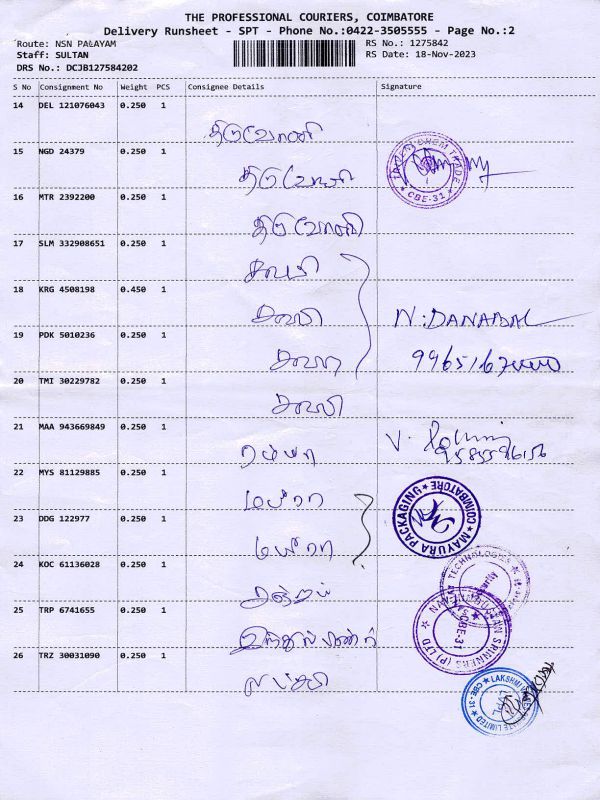 THE PROFESSIONAL COURIERS, COIMBATORE
Delivery Runsheet - SPT - Phone No.:0422-3505555 - Page No.:2
Route: NSN PALAYAM RS No.: 1275842
Staff: SULTAN RS Date: 18-Nov-2023
DRS No.: DCJB127584202
S No Consignment No Weight PCS Consignee Details Signature
14 DEL 121076043 0.250 1 திருவோணி
15 NGD 24379 0.250 1 திருவோணி
CBE-31
16 MTR 2392200 0.250 1 திருவோணி
17 SLM 332908651 0.250 1
18 KRG 4508198 0.450 1 N. DANABAL
19 PDK 5010236 0.250 1
20 TMI 30229782 0.250 1
21 MAA 943669849 0.250 1 ரம்யா V.
22 MYS 81129885 0.250 1 மயூரா
MAYURA PACKAGING COIMBATORE
23 DDG 122977 0.250 1 மயூரா
24 KOC 61136028 0.250 1
TECHNOLOGIES
25 TRP 6741655 0.250 1
SPINNERS (P) LTD CBE-31
26 TRZ 30031090 0.250 1 லட்சுமி
LAKSHMI PRIVATE LIMITED CBE-31 LVPL